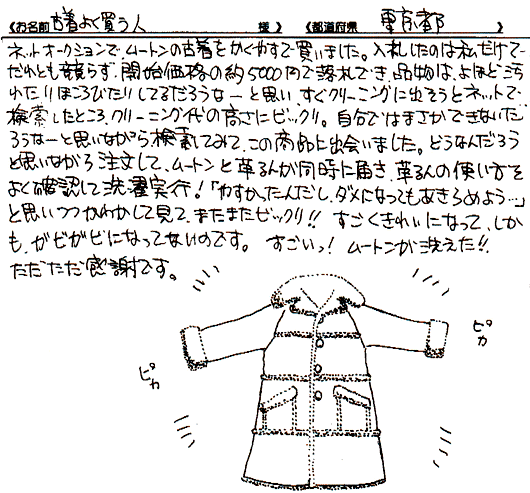 《お名前 古着よく買う人 様 》 《都道府県 東京都 》
ネットオークションで、ムートンの古着をかくやすで買いました。入札したのは私だけで
だれとも競らず、開始価格の約5000円で落札でき、品物は、よほどよごら
れたりほころびたりしてるだろうなーと思い すぐクリーニングに出そうとネットで
検索したところ、クリーニング代の高さにビックリ。自分ではまさかできないだ
ろうなーと思いながら検索してみて、この商品と出会いました。どうなんだろう
と思いながら注文して、ムートンと革るんが同時に届き、革るんの使い方を
よく確認して洗濯実行！「やすかったんだし、ダメになってもあきらめよう…」
と思いつつかわかして見て、またまたビックリ!! すごくきれいになって、しか
も、ガビガビになってないのです。 すごいっ！ ムートンが洗えた!!
ただただ感謝です。
ピカ
ピカ